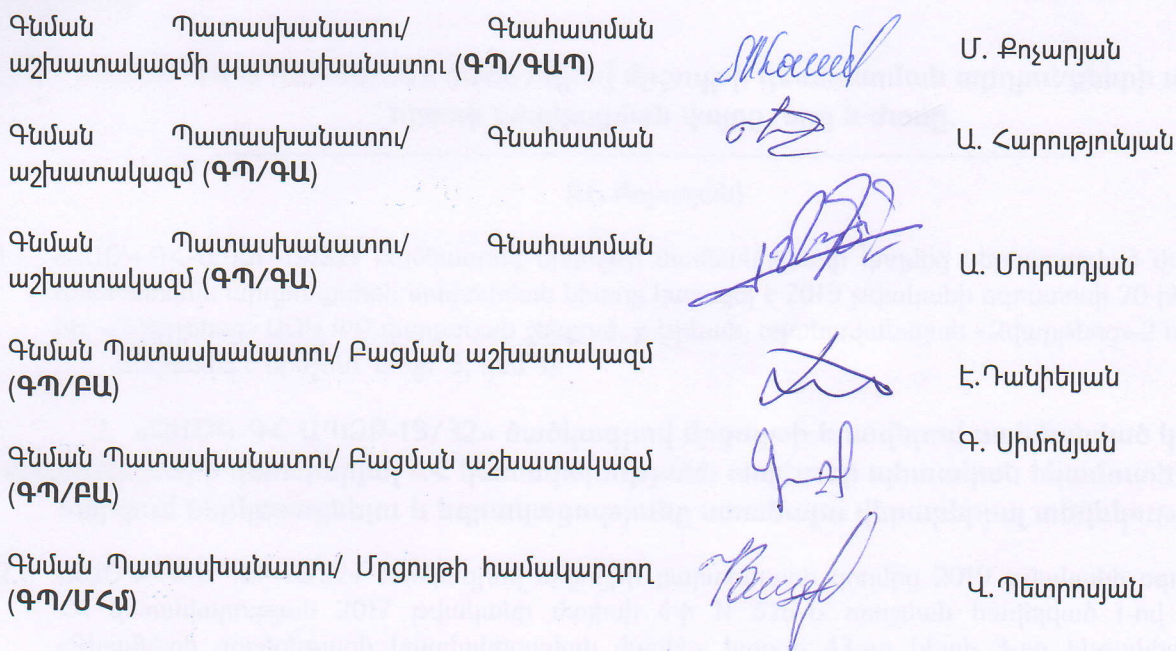 Գնման Պատասխանատու/ Գնահատման
աշխատակազմի պատասխանատու (ԳՊ/ԳԱՊ)
Մ. Քոչարյան
Գնման Պատասխանատու/ Գնահատման
աշխատակազմ (ԳՊ/ԳԱ)
Ա. Հարությունյան
Գնման Պատասխանատու/ Գնահատման
աշխատակազմ (ԳՊ/ԳԱ)
Ա. Մուրադյան
Գնման Պատասխանատու/ Բացման աշխատակազմ
(ԳՊ/ԲԱ)
Է.Դանիելյան
Գնման Պատասխանատու/ Բացման աշխատակազմ
(ԳՊ/ԲԱ)
Գ. Սիմոնյան
Գնման Պատասխանատու/ Մրցույթի համակարգող
(ԳՊ/ՄՀմ)
Վ. Պետրոսյան